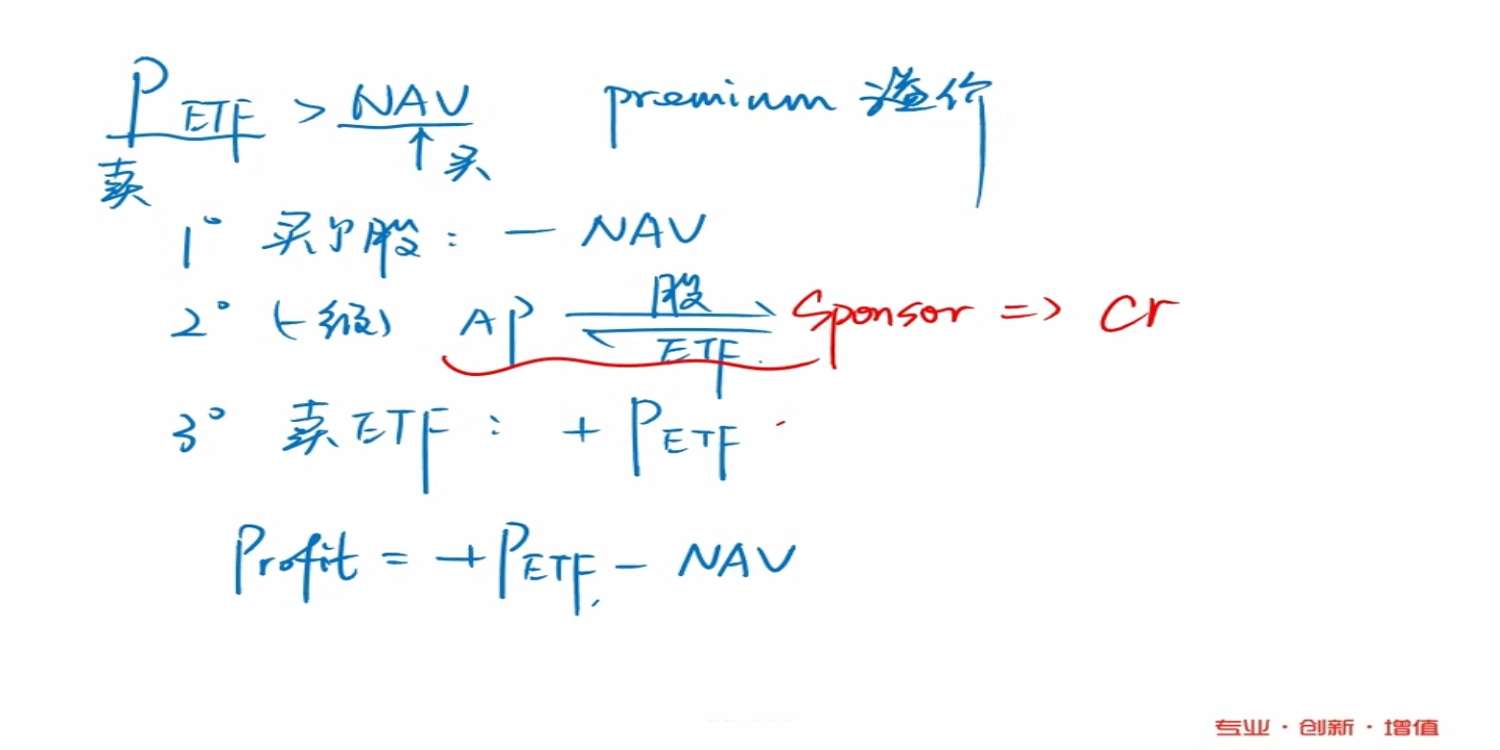 P_ETF > NAV premium 溢价
卖 ↑买
1° 买个股: - NAV
2° (一级) AP 股 ETF Sponsor => Cr
3° 卖ETF: + P_ETF
Profit = + P_ETF - NAV
专业·创新·增值